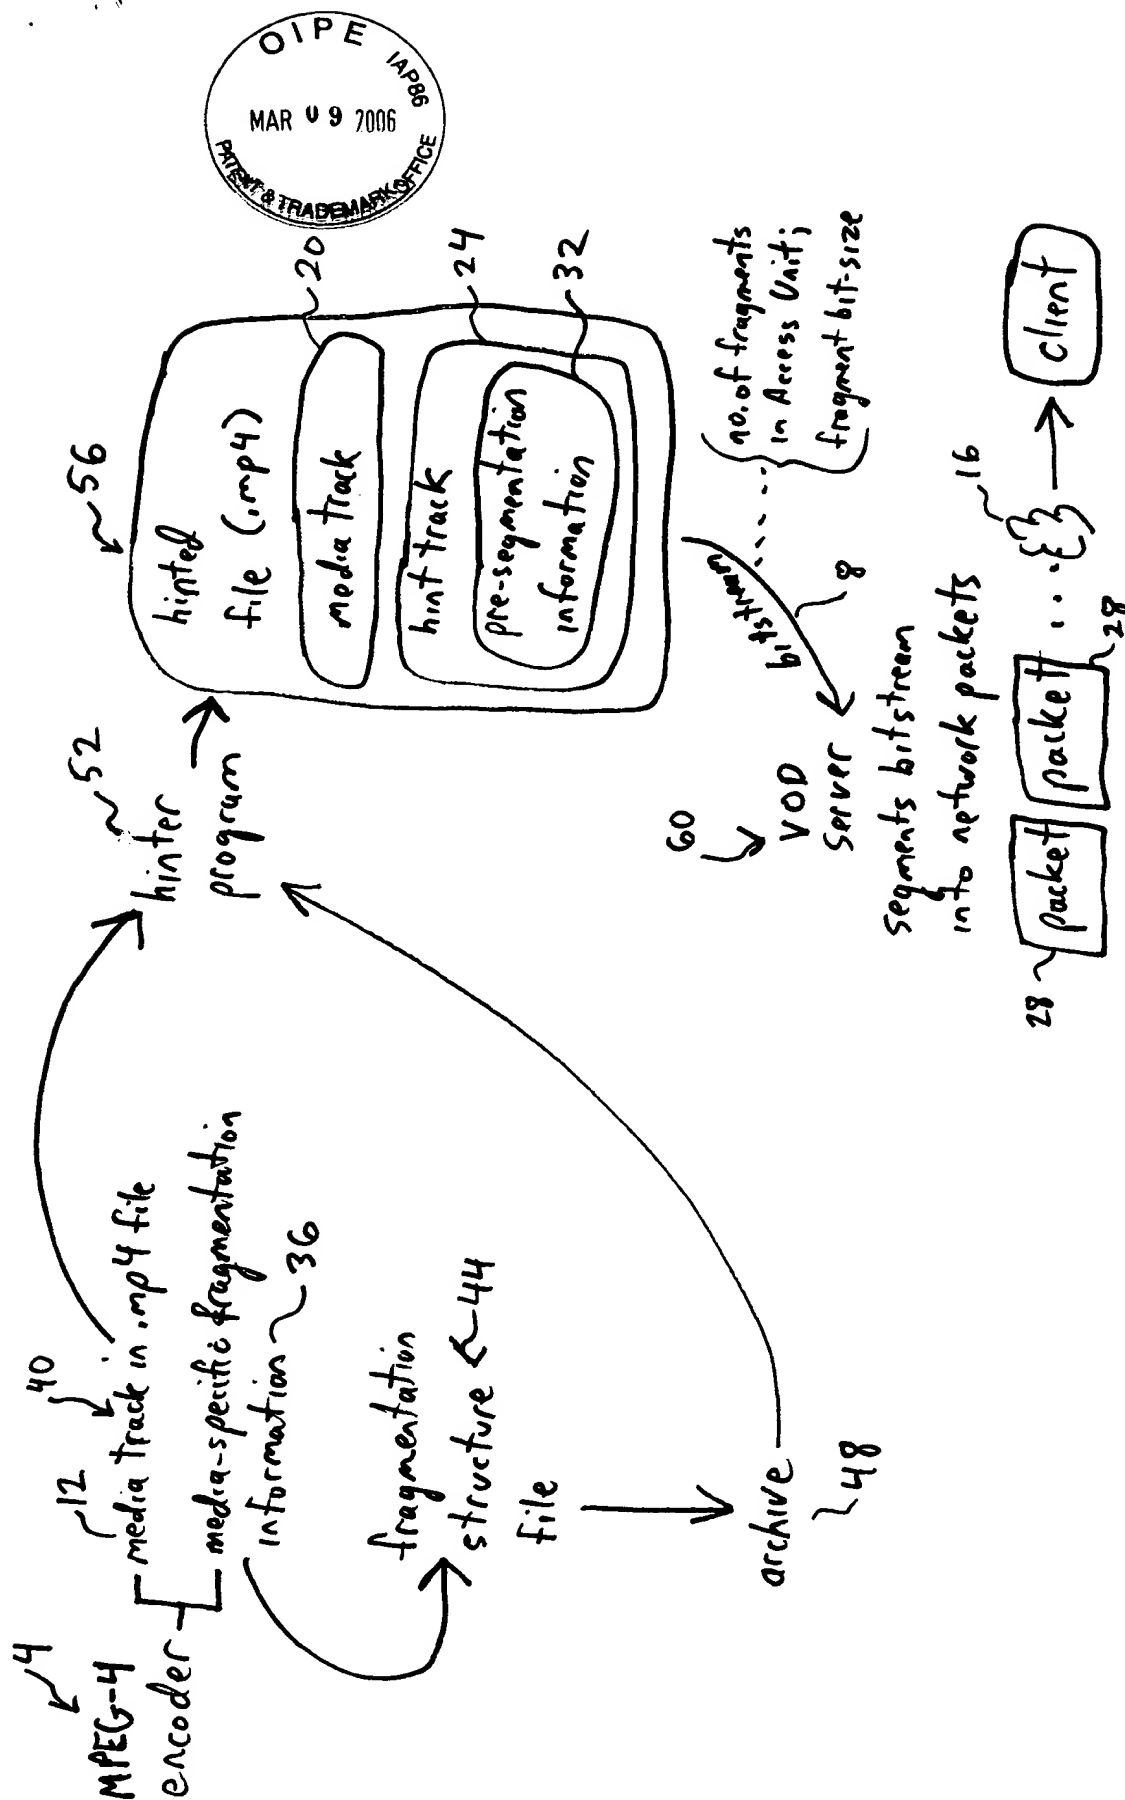 OIPE
IAP86
MAR 09 2006
PATENT & TRADEMARK OFFICE
4
MPEG-4
encoder
12
40
media track in .mp4 file
media-specific fragmentation
information
36
fragmentation
structure
44
file
archive
48
52
hinter
program
56
hinted
file (.mp4)
media track
20
hint track
24
pre-segmentation
information
32
bitstream
8
no. of fragments
in Access Unit;
fragment bit-size
60
VOD
server
segments bitstream
into network packets
28
packet
packet
28
...
16
client